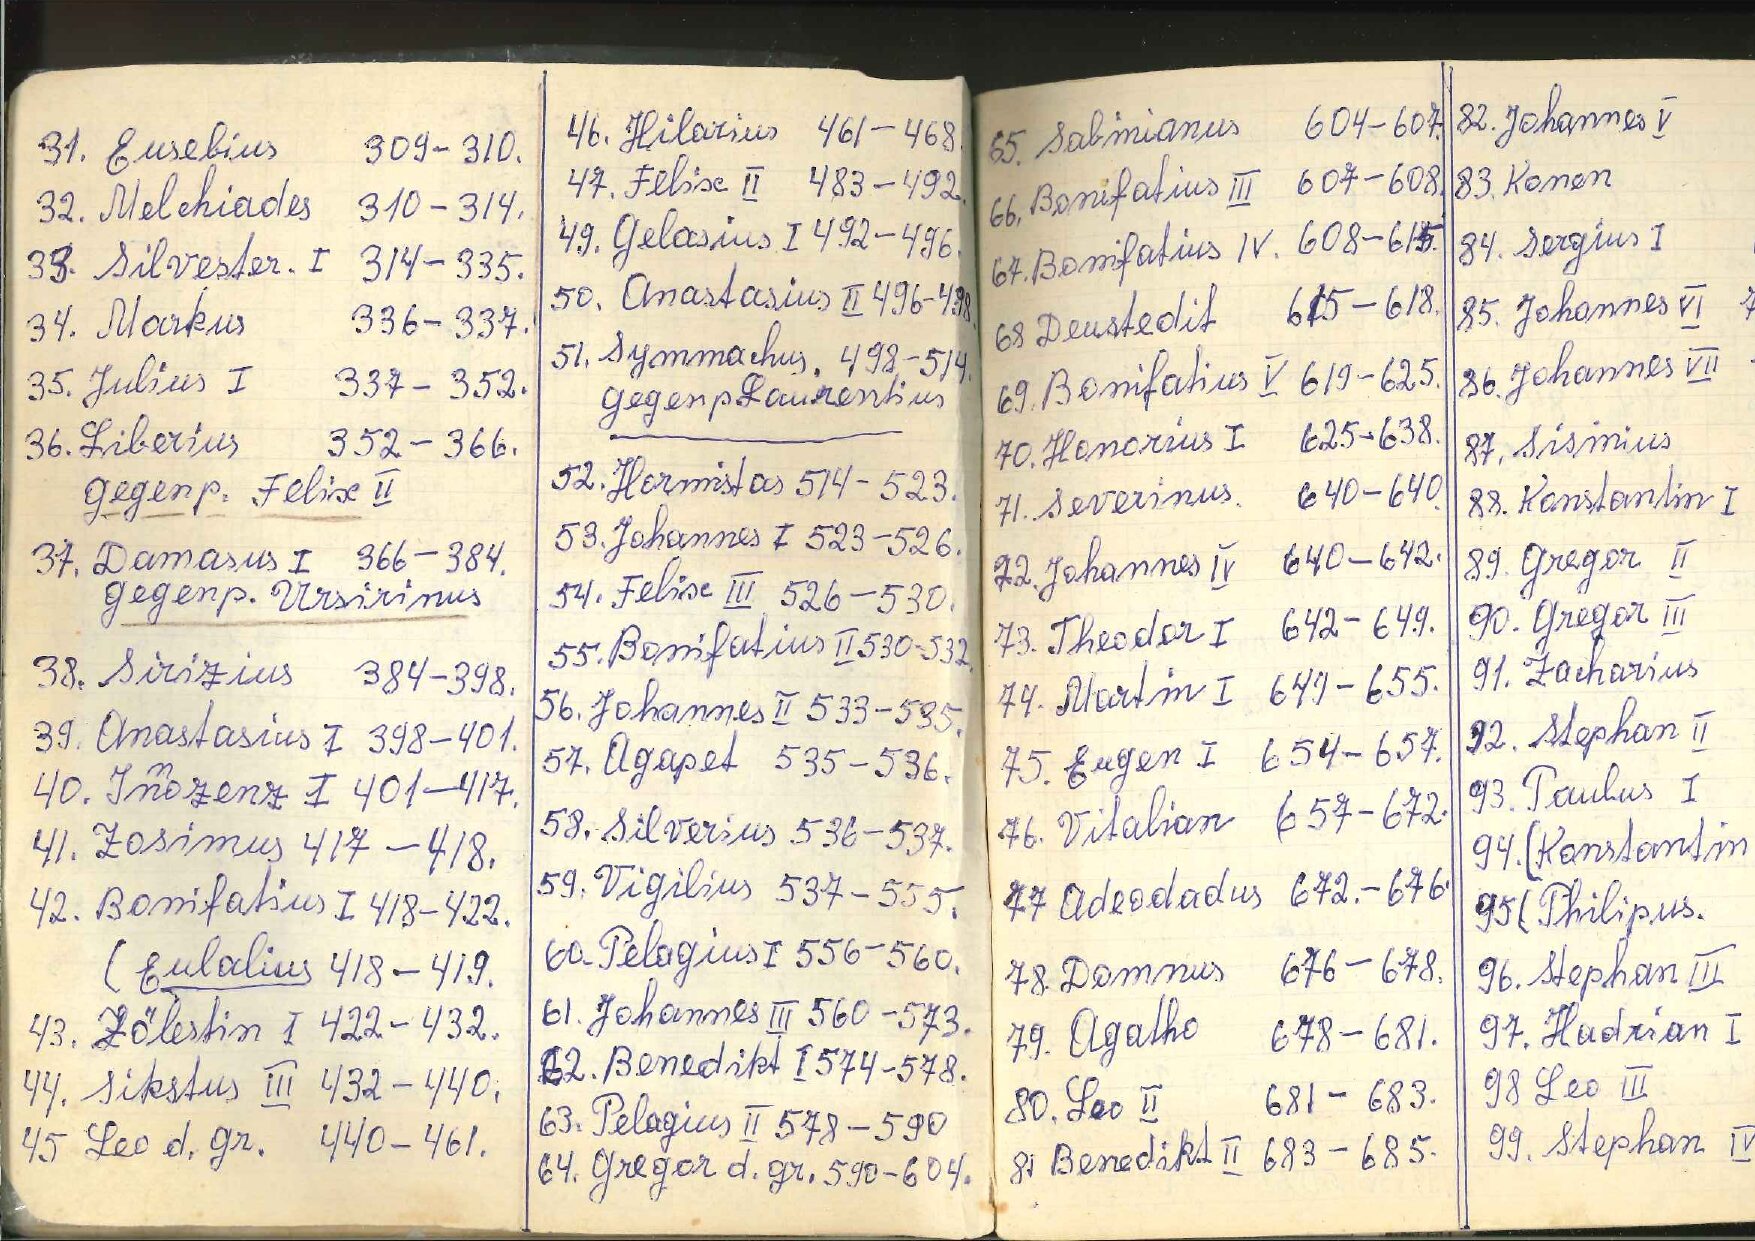 31. Eusebius 309-310.
32. Melchiades 310-314.
33. Silvester. I 314-335.
34. Markus 336-337.
35. Julius I 337-352.
36. Liberius 352-366.
gegenp. Felix II
37. Damasus I 366-384.
gegenp. Ursirinus
38. Sirizius 384-398.
39. Anastasius I 398-401.
40. Innozenz I 401-417.
41. Zosimus 417-418.
42. Bonifatius I 418-422.
(Eulalius 418-419.
43. Zölestin I 422-432.
44. Sikstus III 432-440.
45 Leo d. gr. 440-461.
46. Hilarius 461-468.
47. Felix II 483-492.
49. Gelasius I 492-496.
50. Anastasius II 496-498.
51. Symmachus. 498-514.
gegenp Laurentius
52. Hormistas 514-523.
53. Johannes I 523-526.
54. Felix III 526-530.
55. Bonifatius II 530-532.
56. Johannes II 533-535.
57. Agapet 535-536.
58. Silverius 536-537.
59. Vigilius 537-555.
60. Pelagius I 556-560.
61. Johannes III 560-573.
62. Benedikt I 574-578.
63. Pelagius II 578-590
64. Gregor d. gr. 590-604.
65. Sabinianus 604-607.
66. Bonifatius III 607-608.
67. Bonifatius IV. 608-615.
68 Deustedit 615-618.
69. Bonifatius V 619-625.
70. Honorius I 625-638.
71. Severinus. 640-640
72. Johannes IV 640-642.
73. Theodor I 642-649.
74. Martin I 649-655.
75. Eugen I 654-657.
76. Vitalian 657-672.
77 Adeodadus 672.-676.
78. Domnus 676-678.
79. Agatho 678-681.
80. Leo II 681-683.
81 Benedikt II 683-685.
82. Johannes V
83. Konon
84. Sergius I
85. Johannes VI 7
86. Johannes VII
87. Sisinius
88. Konstantin I
89. Gregor II
90. Gregor III
91. Zacharius
92. Stephan II
93. Paulus I
94. (Konstantin
95 (Philipus.
96. Stephan III
97. Hadrian I
98 Leo III
99. Stephan IV